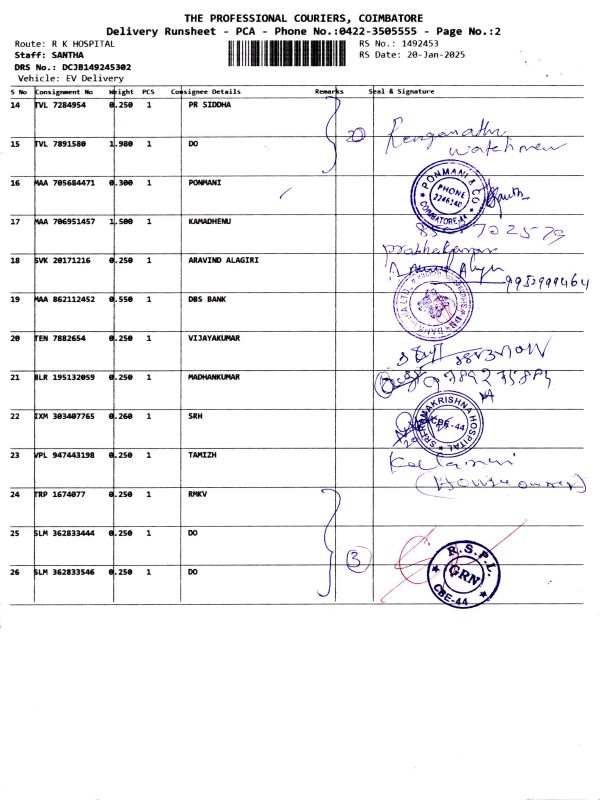 THE PROFESSIONAL COURIERS, COIMBATORE
Delivery Runsheet - PCA - Phone No.:0422-3505555 - Page No.:2
Route: R K HOSPITAL RS No.: 1492453
Staff: SANTHA RS Date: 20-Jan-2025
DRS No.: DCJB149245302
Vehicle: EV Delivery
S No Consignment No Weight PCS Consignee Details Remarks Seal & Signature
14 TVL 7284954 0.250 1 PR SIDDHA
15 TVL 7891580 1.980 1 DO
watchmen
16 MAA 705684471 0.300 1 PONMANI
PONMANI & CO
PHONE
2246140
COIMBATORE-44
17 MAA 706951457 1.500 1 KAMADHENU
18 SVK 20171216 0.250 1 ARAVIND ALAGIRI
prabhakaran
9952999464
19 MAA 862112452 0.550 1 DBS BANK
20 TEN 7882654 0.250 1 VIJAYAKUMAR
21 BLR 195132059 0.250 1 MADHANKUMAR
22 IXM 303407765 0.260 1 SRH
SRI RAMAKRISHNA HOSPITAL
CBE-44
23 VPL 947443198 0.250 1 TAMIZH
(House owner)
24 TRP 1674077 0.250 1 RMKV
25 SLM 362833444 0.250 1 DO
3
26 SLM 362833546 0.250 1 DO
R.S.P.L.
GRN
CBE-44